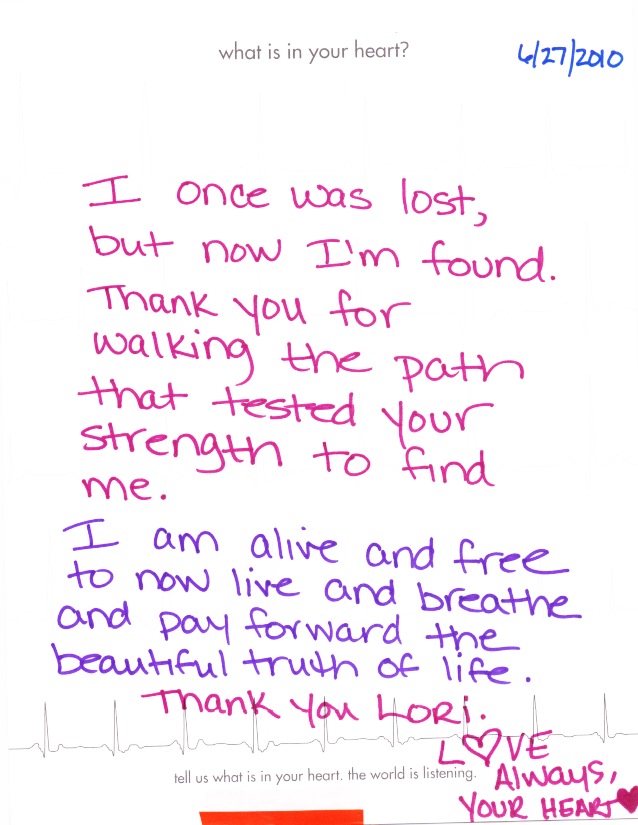 what is in your heart?
6/27/2010
I once was lost,
but now I'm found.
Thank you for
walking the path
that tested your
strength to find
me.
I am alive and free
to now live and breathe
and pay forward the
beautiful truth of life.
Thank you Lori.
L♡VE
Always,
YOUR HEART♥
tell us what is in your heart. the world is listening.